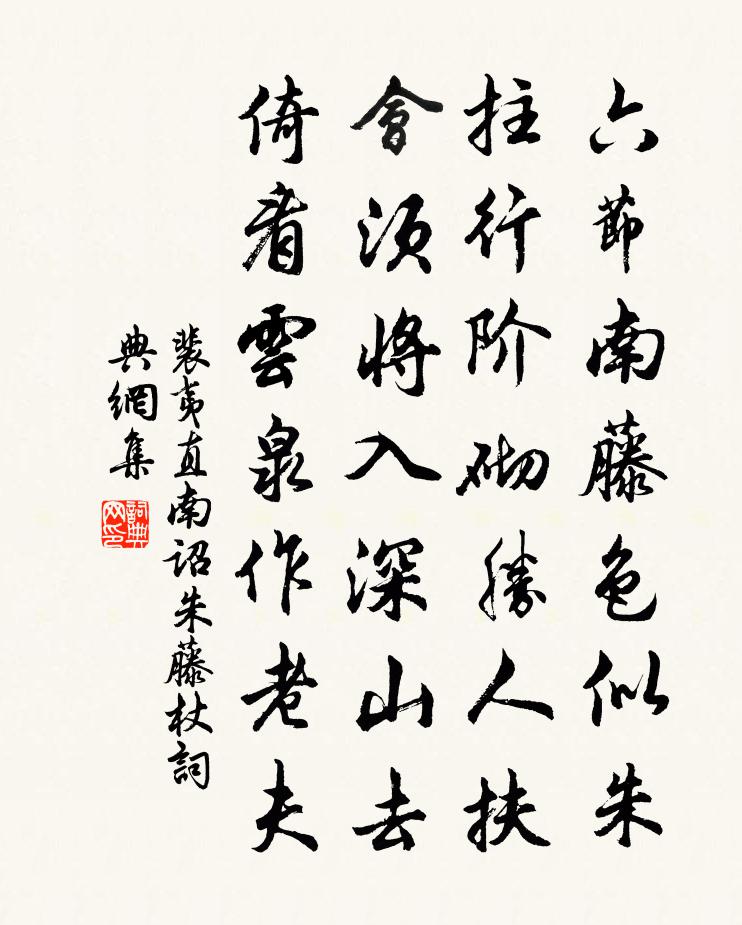 六節南藤色似朱
拄行阶砌勝人扶
會須將入深山去
倚看雲泉作老夫
裴夷直南诏朱藤杖詞
典網集
詞典
网印